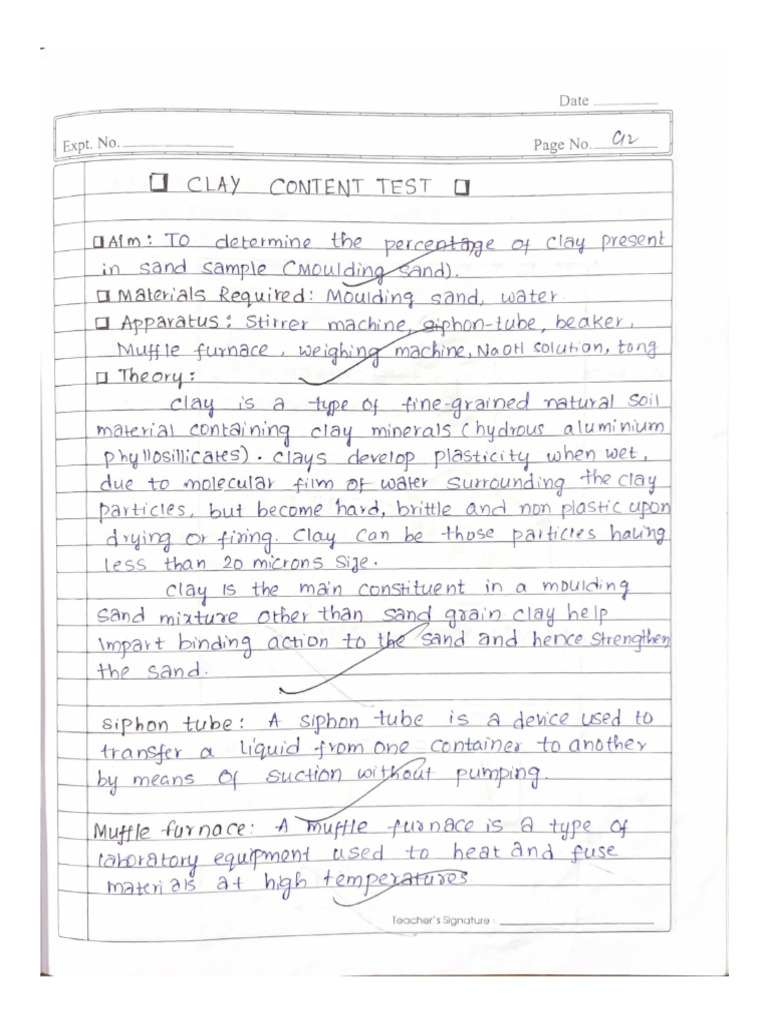 Date
Expt. No.
Page No. G12
CLAY CONTENT TEST
Aim: To determine the percentage of clay present
in sand sample (Moulding sand).
Materials Required: Moulding sand, water.
Apparatus: Stirrer machine, siphon-tube, beaker,
Muffle furnace, weighing machine, NaOH solution, tong
Theory:
Clay is a type of fine-grained natural soil
material containing clay minerals (hydrous aluminium
phyllosillicates). Clays develop plasticity when wet,
due to molecular film of water surrounding the clay
particles, but become hard, brittle and non plastic upon
drying or firing. Clay can be those particles having
less than 20 microns size.
Clay is the main constituent in a moulding
sand mixture other than sand grain clay help
impart binding action to the sand and hence strengthen
the sand.
Siphon tube: A siphon tube is a device used to
transfer a liquid from one container to another
by means of suction without pumping.
Muffle furnace: A muffle furnace is a type of
laboratory equipment used to heat and fuse
materials at high temperatures.
Teacher's Signature :